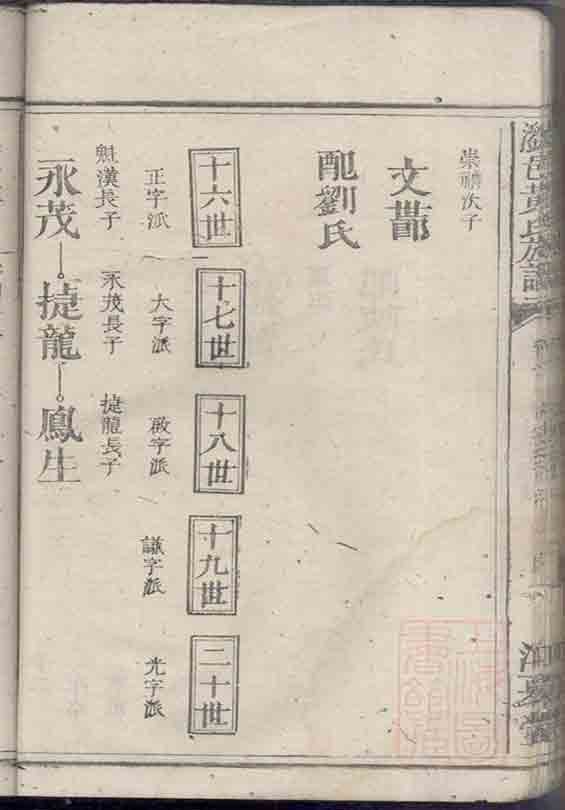 崇禧次子
文鄁
配劉氏
十六世
十七世
十八世
十九世
二十世
正字派
大字派
啟字派
謙字派
光字派
魁漢長子
永茂長子
捷龍長子
永茂
捷龍
鳳生
黃氏族譜